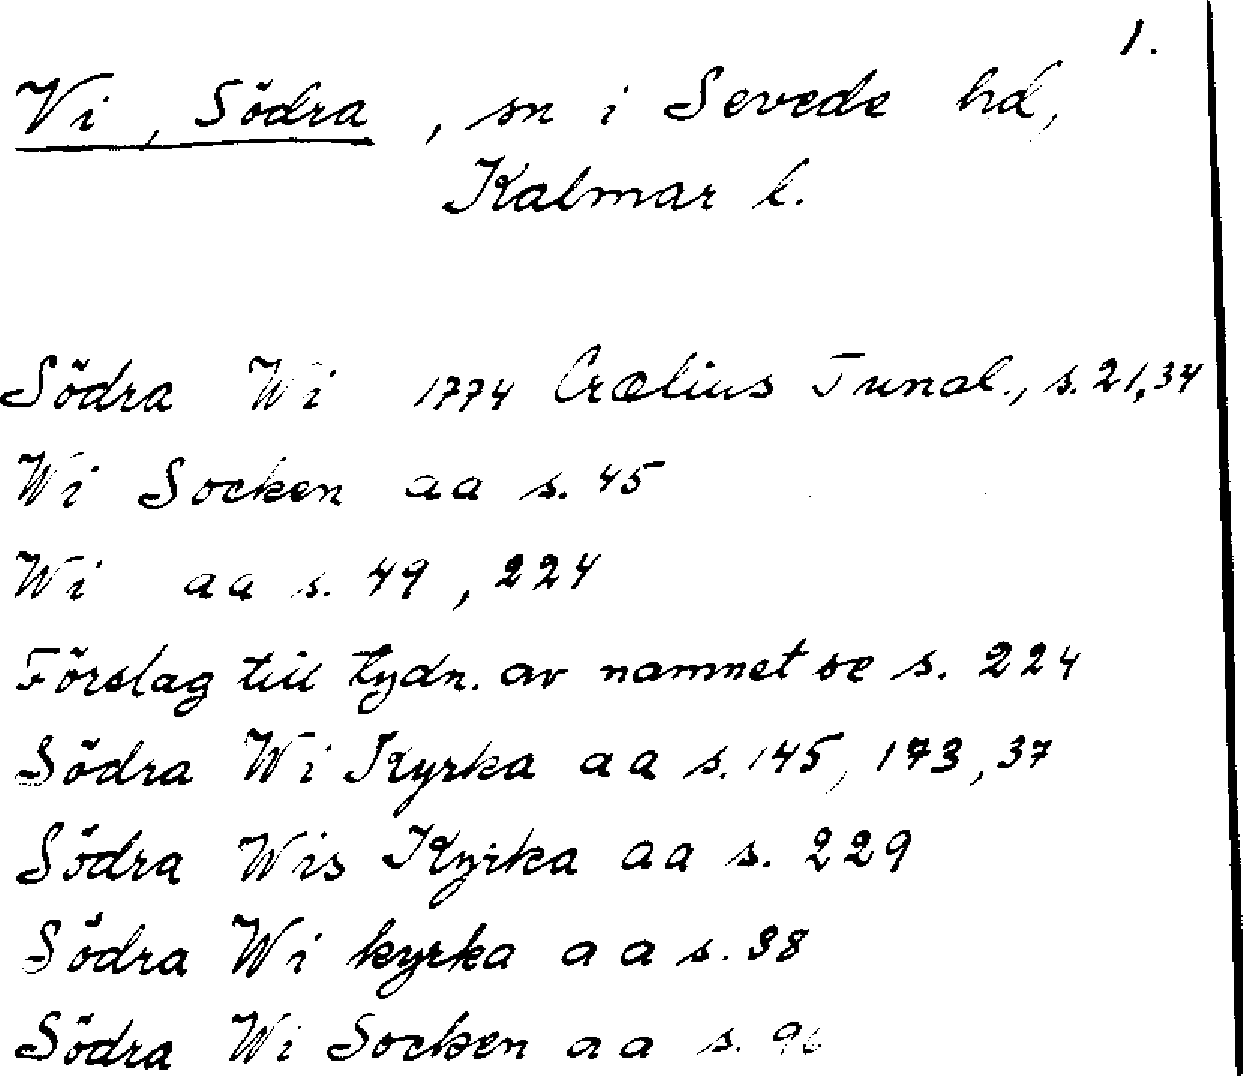 1.
Vi, Södra, sn i Sevede hd,
Kalmar l.
Södra Wi 1774 Crælius Tunal., s. 21, 34
Wi Socken aa s. 45
Wi aa s. 49, 224
Förslag till tydn. av namnet se s. 224
Södra Wi Kyrka aa s. 145, 173, 37
Södra Wis Kyrka aa s. 229
Södra Wi kyrka aa s. 38
Södra Wi Socken aa s. 96